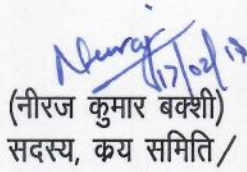 Neeraj
17/02/17
(नीरज कुमार बक्शी)
सदस्य, क्रय समिति /